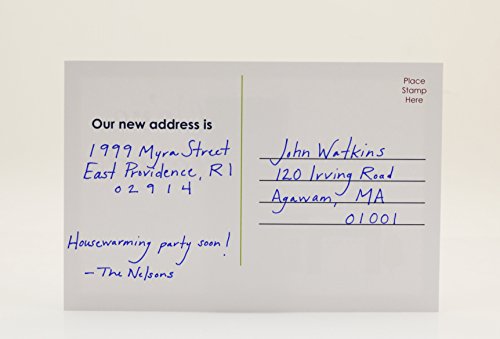 Place
Stamp
Here
Our new address is
1999 Myra Street
East Providence, RI
02914
Housewarming party soon!
- The Nelsons
John Watkins
120 Irving Road
Agawam, MA
01001